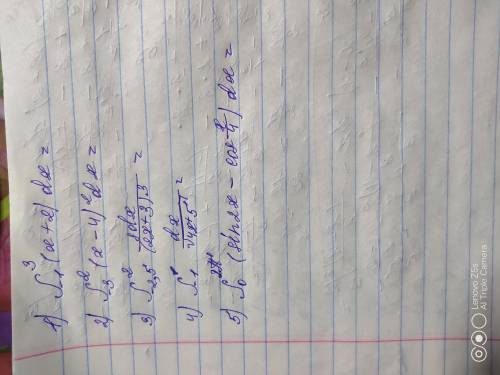 1) ∫₁³ (x+2) dx =
2) ∫₃² (x-4)² dx =
3) dx / (2x+3)·3 =
4) dx / √4x+5 =
5) (sin2x - cos x/4) dx =
Lenovo Z5s
AI Triple Camera